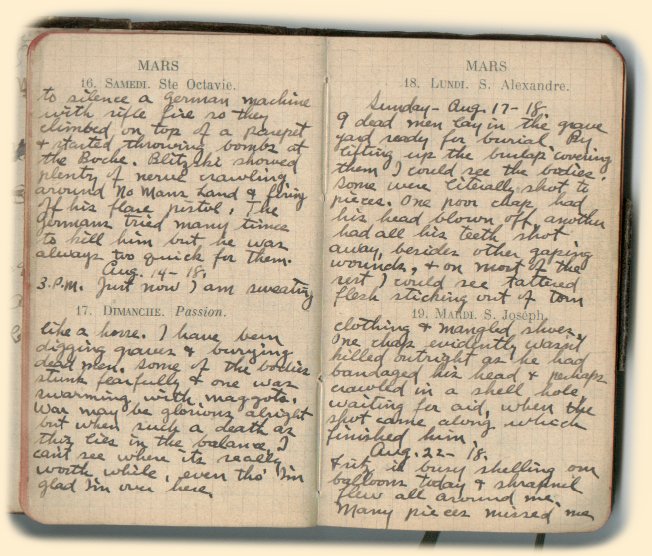 MARS
16. SAMEDI. Ste Octavie.
to silence a German machine
with rifle fire so they
climbed on top of a parapet
& started throwing bombs at
the Boche. Blitzski showed
plenty of nerve crawling
around No Mans Land & firing
off his flare pistol. The
Germans tried many times
to kill him but he was
always too quick for them.
Aug. 14-18.
3.P.M. Just now I am sweating
17. DIMANCHE. Passion.
like a horse. I have been
digging graves & burying
dead men. Some of the bodies
stunk fearfully & one was
swarming with maggots.
War may be glorious alright
but when such a death as
this lies in the balance I
can't see where its really
worth while, even tho' I'm
glad I'm over here.
MARS
18. LUNDI. S. Alexandre.
Sunday - Aug. 17-18.
9 dead men lay in the grave
yard ready for burial. By
lifting up the burlap covering
them I could see the bodies.
Some were literally shot to
pieces. One poor chap had
his head blown off, another
had all his teeth shot
away, besides other gaping
wounds, & on most of the
rest I could see tattered
flesh sticking out of torn
19. MARDI. S. Joseph.
clothing & mangled shoes.
One chap evidently wasn't
killed outright as he had
bandaged his head & perhaps
crawled in a shell hole,
waiting for aid, when the
shot came along which
finished him.
Aug. 22-18.
Fritz is busy shelling our
balloons today & shrapnel
flew all around me.
Many pieces missed me